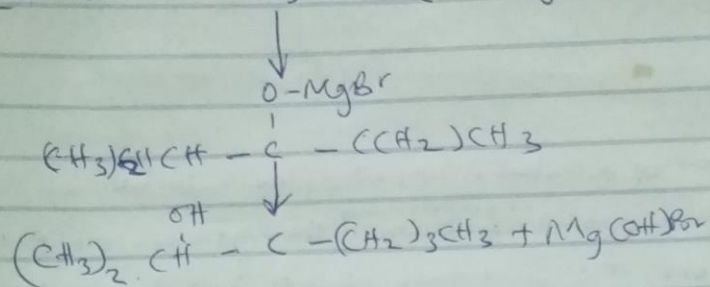 O-MgBr
CH - C - (CH2)CH3
OH
(CH3)2 CH - C -(CH2)3CH3 + Mg(OH)Br